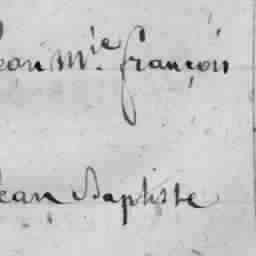 Jean M.ie françois
Jean Baptiste